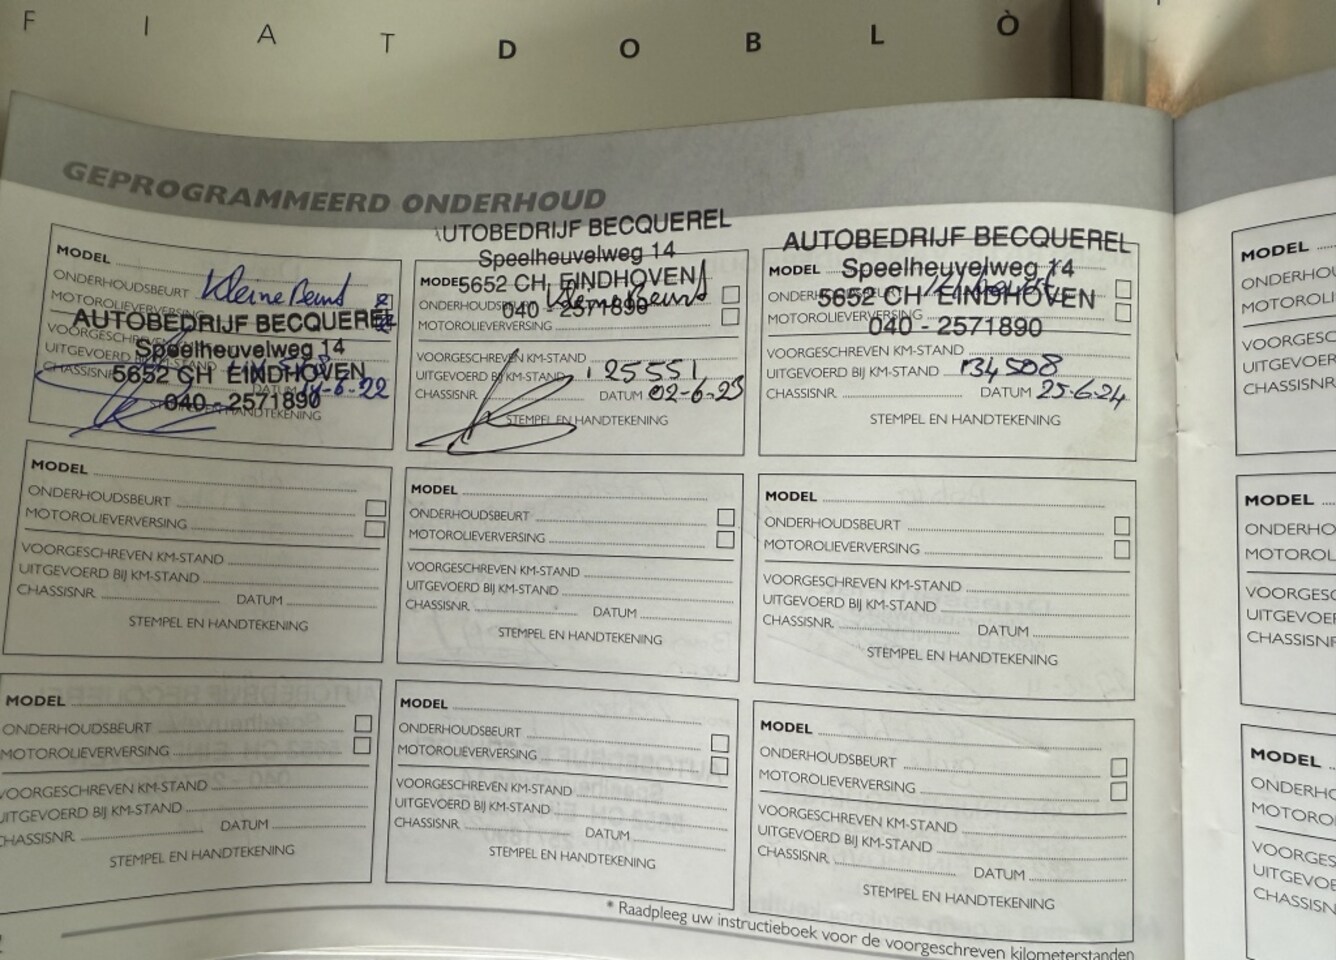 FIAT DOBLÒ
GEPROGRAMMEERD ONDERHOUD
MODEL
ONDERHOUDSBEURT Kleine Beurt
MOTOROLIEVERVERSING
AUTOBEDRIJF BECQUEREL
VOORGESCHREVEN KM-STAND
Speelheuvelweg 14
UITGEVOERD BIJ KM-STAND
5652 CH EINDHOVEN
CHASSISNR. DATUM 14-6-22
040 - 2571890
STEMPEL EN HANDTEKENING
AUTOBEDRIJF BECQUEREL
Speelheuvelweg 14
MODEL 5652 CH EINDHOVEN
ONDERHOUDSBEURT Kleine Beurt
040 - 2571890
MOTOROLIEVERVERSING
VOORGESCHREVEN KM-STAND
UITGEVOERD BIJ KM-STAND 125551
CHASSISNR. DATUM 02-6-23
STEMPEL EN HANDTEKENING
AUTOBEDRIJF BECQUEREL
MODEL Speelheuvelweg 14
ONDERHOUDSBEURT
5652 CH EINDHOVEN
MOTOROLIEVERVERSING
040 - 2571890
VOORGESCHREVEN KM-STAND
UITGEVOERD BIJ KM-STAND 134508
CHASSISNR. DATUM 25-6-24
STEMPEL EN HANDTEKENING
MODEL
ONDERHOUDSBEURT
MOTOROLIEVERVERSING
VOORGESCHREVEN KM-STAND
UITGEVOERD BIJ KM-STAND
CHASSISNR. DATUM
STEMPEL EN HANDTEKENING
MODEL
ONDERHOUDSBEURT
MOTOROLIEVERVERSING
VOORGESCHREVEN KM-STAND
UITGEVOERD BIJ KM-STAND
CHASSISNR. DATUM
STEMPEL EN HANDTEKENING
MODEL
ONDERHOUDSBEURT
MOTOROLIEVERVERSING
VOORGESCHREVEN KM-STAND
UITGEVOERD BIJ KM-STAND
CHASSISNR. DATUM
STEMPEL EN HANDTEKENING
MODEL
ONDERHOUDSBEURT
MOTOROLIEVERVERSING
VOORGESCHREVEN KM-STAND
UITGEVOERD BIJ KM-STAND
CHASSISNR. DATUM
STEMPEL EN HANDTEKENING
MODEL
ONDERHOUDSBEURT
MOTOROLIEVERVERSING
VOORGESCHREVEN KM-STAND
UITGEVOERD BIJ KM-STAND
CHASSISNR. DATUM
STEMPEL EN HANDTEKENING
MODEL
ONDERHOUDSBEURT
MOTOROLIEVERVERSING
VOORGESCHREVEN KM-STAND
UITGEVOERD BIJ KM-STAND
CHASSISNR. DATUM
STEMPEL EN HANDTEKENING
* Raadpleeg uw instructieboek voor de voorgeschreven kilometerstanden
MODEL
ONDERHOU
MOTOROLI
VOORGESC
UITGEVOE
CHASSISNR
MODEL
ONDERHO
MOTOROL
VOORGESC
UITGEVOER
CHASSISNR
MODEL
ONDERHO
MOTORO
VOORGES
UITGEVOE
CHASSISN